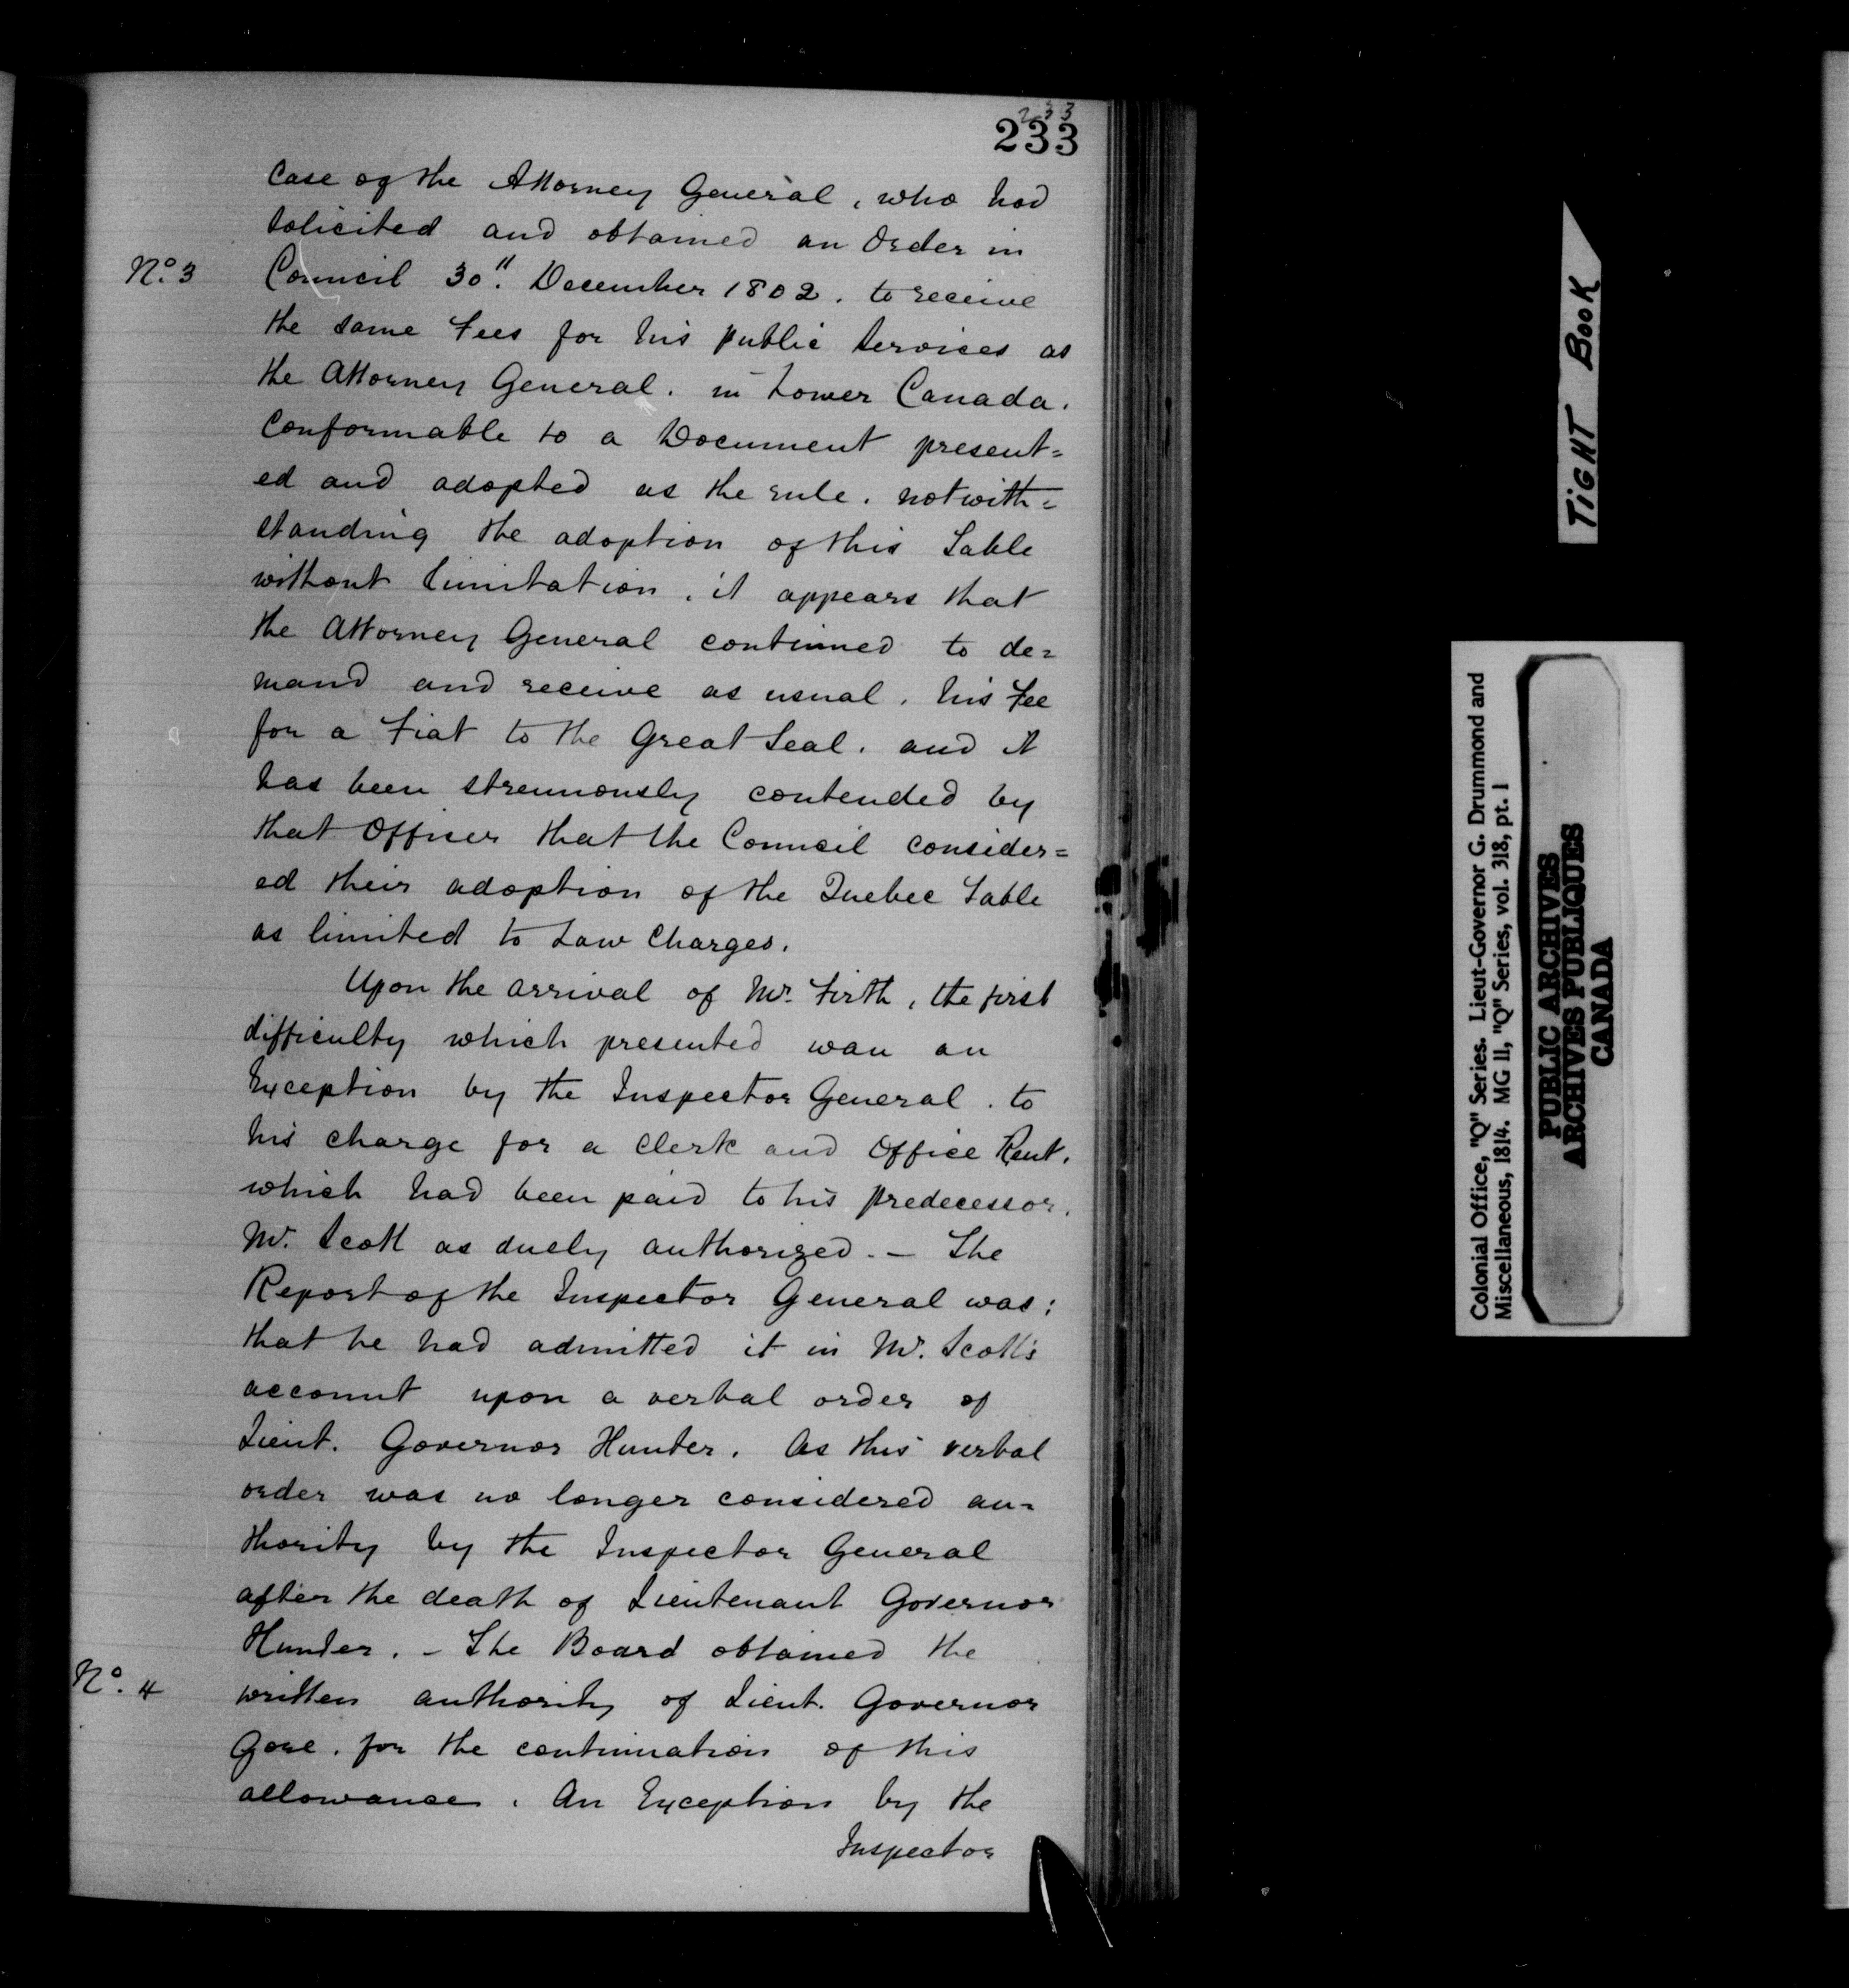 233
233
Case of the Attorney General, who had
solicited and obtained an Order in
No. 3 Council 30". December 1802. to receive
the same Fees for his public Services as
the Attorney General. in Lower Canada.
Conformable to a Document present=
ed and adopted as the rule. notwith=
standing the adoption of this Table
without limitation, it appears that
the Attorney General continued to de=
mand and receive as usual, his Fee
for a Fiat to the Great Seal. and it
has been strenuously contended by
that Officer that the Council consider=
ed their adoption of the Quebec Table
as limited to Law Charges.
Upon the arrival of Mr. Firth, the first
difficulty which presented was an
Exception by the Inspector General. to
his charge for a Clerk and Office Rent.
which had been paid to his predecessor.
Mr. Scott as duely authorized. — The
Report of the Inspector General was:
that he had admitted it in Mr. Scott's
account upon a verbal order of
Lieut. Governor Hunter. As this verbal
order was no longer considered au=
thority by the Inspector General
after the death of Lieutenant Governor
Hunter. - The Board obtained the
No. 4 written authority of Lieut. Governor
Gore. for the continuation of this
allowance. An Exception by the
Inspector
TIGHT BOOK
Colonial Office, "Q" Series. Lieut-Governor G. Drummond and
Miscellaneous, 1814. MG 11, "Q" Series, vol. 318, pt. 1
PUBLIC ARCHIVES
ARCHIVES PUBLIQUES
CANADA